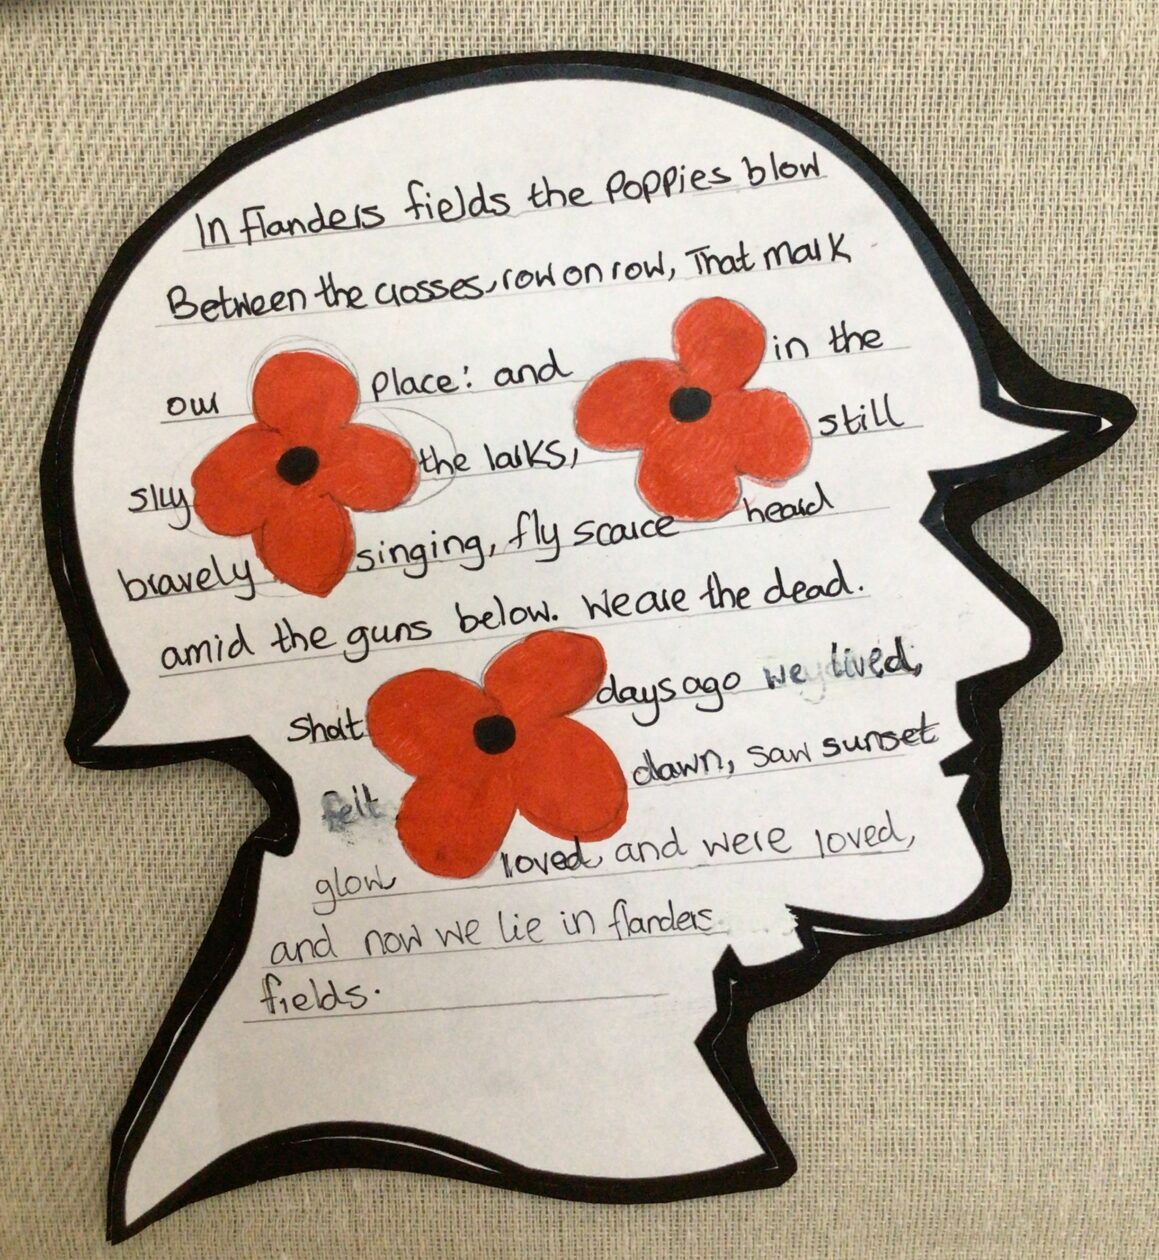 In Flanders fields the poppies blow
Between the crosses, row on row, That mark
our place: and in the
sky the larks, still
bravely singing, fly scarce heard
amid the guns below. We are the dead.
Short days ago we lived,
felt dawn, saw sunset
glow loved, and were loved,
and now we lie in flanders
fields.